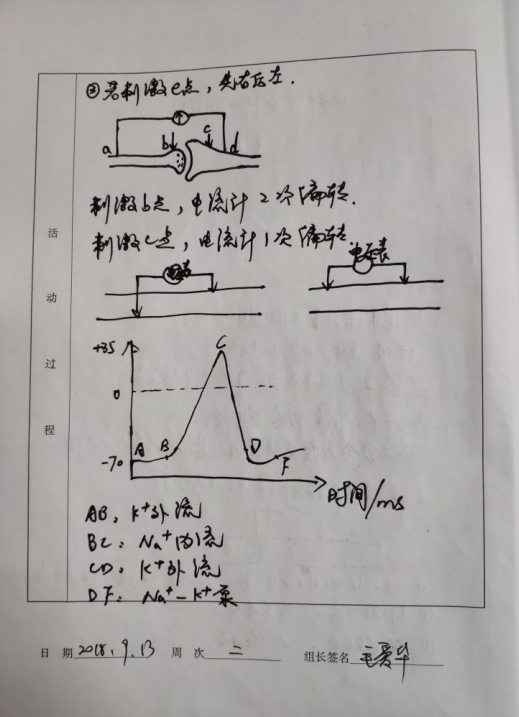 ②若刺激e点，先右后左.
a b c d
刺激b点，电流计2次偏转.
刺激c点，电流计1次偏转.
电压表
活动过程
+35
C
0
A B D F
-70
时间/ms
AB：K+外流
BC：Na+内流
CD：K+外流
DF：Na+-K+泵
日 期 2018.9.13 周 次 二 组长签名 毛爱华